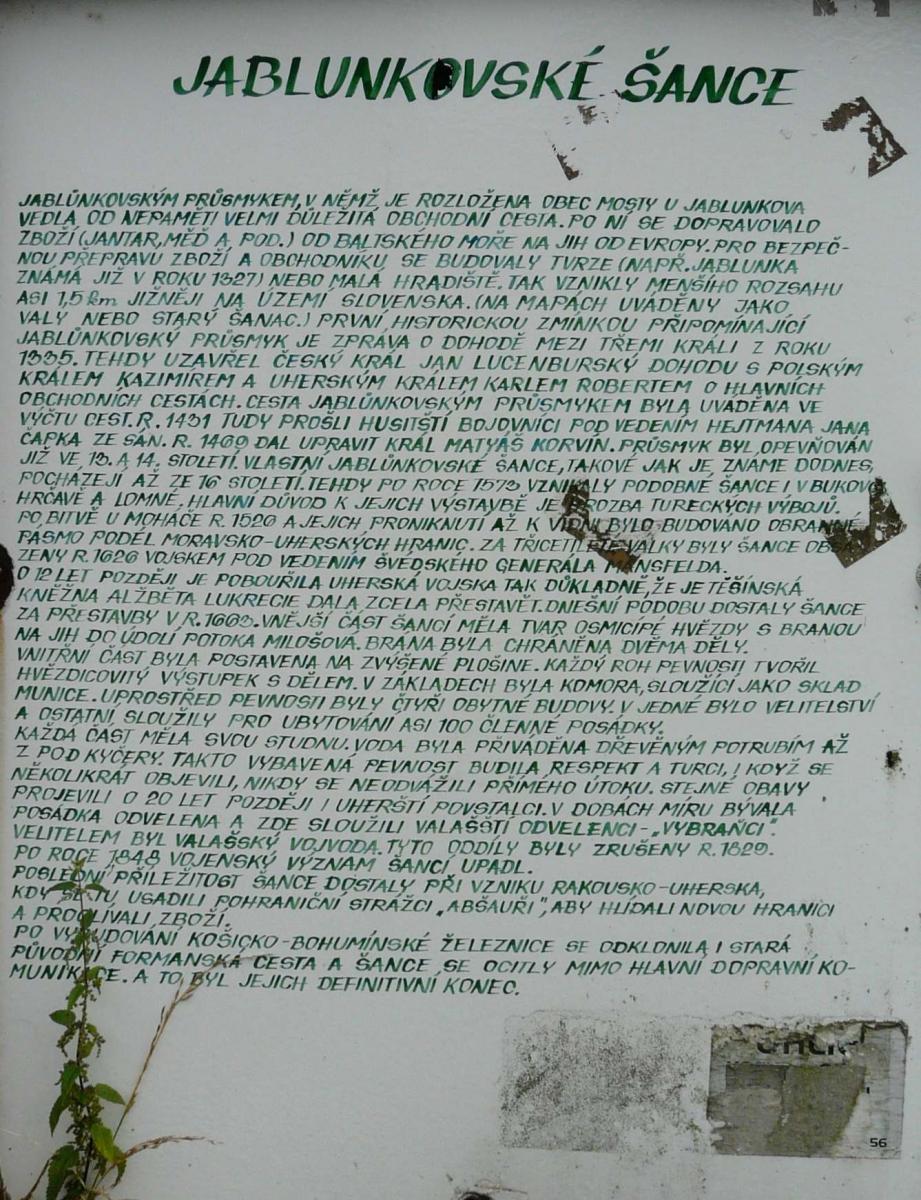 JABLUNKOVSKÉ ŠANCE
JABLŮNKOVSKÝM PRŮSMYKEM, V NĚMŽ JE ROZLOŽENA OBEC MOSTY U JABLUNKOVA
VEDLA OD NEPAMĚTI VELMI DŮLEŽITÁ OBCHODNÍ CESTA. PO NÍ SE DOPRAVOVALO
ZBOŽÍ (JANTAR, MĚĎ A POD.) OD BALTSKÉHO MOŘE NA JIH OD EVROPY. PRO BEZPEČ-
NOU PŘEPRAVU ZBOŽÍ A OBCHODNIKU SE BUDOVALY TVRZE (NAPŘ. JABLUNKA
ZNÁMÁ JIŽ V ROKU 1327) NEBO MALÁ HRADIŠTĚ. TAK VZNIKLY MENŠÍHO ROZSAHU
ASI 1,5 km JIŽNĚJI NA ÚZEMÍ SLOVENSKA. (NA MAPÁCH UVÁDĚNY JAKO
VALY NEBO STARÝ ŠANAC.) PRVNÍ HISTORICKOU ZMÍNKOU PŘIPOMÍNAJÍCÍ
JABLŮNKOVSKÝ PRŮSMYK JE ZPRÁVA O DOHODĚ MEZI TŘEMI KRÁLI Z ROKU
1335. TEHDY UZAVŘEL ČESKÝ KRÁL JAN LUCENBURSKÝ DOHODU S POLSKÝM
KRÁLEM KAZIMÍŘEM A UHERSKÝM KRÁLEM KARLEM ROBERTEM O HLAVNÍCH
OBCHODNÍCH CESTÁCH. CESTA JABLŮNKOVSKÝM PRŮSMYKEM BYLA UVÁDĚNA VE
VÝČTU CEST. R. 1431 TUDY PROŠLI HUSITŠTÍ BOJOVNÍCI POD VEDENÍM HEJTMANA JANA
ČAPKA ZE SÁN. R. 1469 DAL UPRAVIT KRÁL MATYÁŠ KORVÍN. PRŮSMYK BYL OPEVŇOVÁN
JIŽ VE 13. A 14. STOLETÍ. VLASTNÍ JABLŮNKOVSKÉ ŠANCE, TAKOVÉ JAK JE ZNÁME DODNES,
POCHÁZEJÍ AŽ ZE 16 STOLETÍ. TEHDY PO ROCE 1573 VZNIKALY PODOBNÉ ŠANCE I V BUKOVCI
HRČAVĚ A LOMNÉ. HLAVNÍ DŮVOD K JEJICH VÝSTAVBĚ JE HROZBA TURECKÝCH VÝBOJŮ.
PO BITVĚ U MOHÁČE R. 1526 A JEJICH PRONIKNUTÍ AŽ K VÍDNI BYLO BUDOVÁNO OBRANNÉ
PÁSMO PODÉL MORAVSKO-UHERSKÝCH HRANIC. ZA TŘICETILETÉ VÁLKY BYLY ŠANCE OBSA
ZENY R. 1626 VOJSKEM POD VEDENÍM ŠVÉDSKÉHO GENERÁLA MANSFELDA.
O 12 LET POZDĚJI JE POBOUŘILA UHERSKÁ VOJSKA TAK DŮKLADNĚ, ŽE JE TĚŠÍNSKÁ
KNĚŽNA ALŽBĚTA LUKRECIE DALA ZCELA PŘESTAVĚT. DNEŠNÍ PODOBU DOSTALY ŠANCE
ZA PŘESTAVBY V R. 1663. VNĚJŠÍ ČÁST ŠANCÍ MĚLA TVAR OSMICÍPÉ HVĚZDY S BRANOU
NA JIH DO ÚDOLÍ POTOKA MILOŠOVÁ. BRÁNA BYLA CHRÁNĚNA DVĚMA DĚLY.
VNITŘNÍ ČÁST BYLA POSTAVENA NA ZVÝŠENÉ PLOŠINE. KAŽDÝ ROH PEVNOSTI TVOŘIL
HVĚZDICOVITÝ VÝSTUPEK S DĚLEM. V ZÁKLADECH BYLA KOMORA, SLOUŽÍCÍ JAKO SKLAD
MUNICE. UPROSTŘED PEVNOSTI BYLY ČTYŘI OBYTNÉ BUDOVY. V JEDNÉ BYLO VELITELSTVÍ
A OSTATNÍ SLOUŽILY PRO UBYTOVÁNÍ ASI 100 ČLENNÉ POSÁDKY.
KAŽDÁ ČÁST MĚLA SVOU STUDNU. VODA BYLA PŘIVÁDĚNA DŘEVĚNÝM POTRUBÍM AŽ
Z POD KYČERY. TAKTO VYBAVENÁ PEVNOST BUDILA RESPEKT A TURCI, I KDYŽ SE
NĚKOLIKRÁT OBJEVILI, NIKDY SE NEODVÁŽILI PŘÍMÉHO ÚTOKU. STEJNÉ OBAVY
PROJEVILI O 20 LET POZDĚJI I UHERŠTÍ POVSTALCI. V DOBÁCH MÍRU BÝVALA
POSÁDKA ODVELENA A ZDE SLOUŽILI VALAŠŠTÍ ODVELENCI - „VYBRAŇCI".
VELITELEM BYL VALAŠSKÝ VOJVODA. TYTO ODDÍLY BYLY ZRUŠENY R. 1829.
PO ROCE 1848 VOJENSKÝ VÝZNAM ŠANCÍ UPADL.
POSLEDNÍ PŘÍLEŽITOST ŠANCE DOSTALY PŘI VZNIKU RAKOUSKO-UHERSKA,
KDY SE TU USADILI POHRANIČNÍ STRÁŽCI „ABŠAUŘI", ABY HLÍDALI NOVOU HRANICI
A PROCLÍVALI ZBOŽÍ.
PO VYBUDOVÁNÍ KOŠICKO-BOHUMÍNSKÉ ŽELEZNICE SE ODKLONILA I STARÁ
PŮVODNÍ FORMANSKÁ CESTA A ŠANCE SE OCITLY MIMO HLAVNÍ DOPRAVNÍ KO-
MUNIKACE. A TO BYL JEJICH DEFINITIVNÍ KONEC.
56